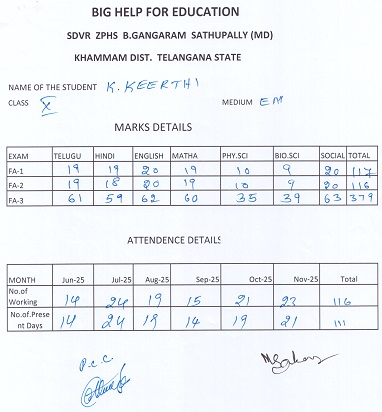 BIG HELP FOR EDUCATION
SDVR ZPHS B.GANGARAM SATHUPALLY (MD)
KHAMMAM DIST. TELANGANA STATE
NAME OF THE STUDENT K. KEERTHI
CLASS X MEDIUM EM
MARKS DETAILS
EXAM TELUGU HINDI ENGLISH MATHA PHY.SCI BIO.SCI SOCIAL TOTAL
FA-1 19 19 20 19 10 9 20 117
FA-2 19 18 20 19 10 9 20 116
FA-3 61 59 62 60 35 39 63 379
ATTENDENCE DETAILS
MONTH Jun-25 Jul-25 Aug-25 Sep-25 Oct-25 Nov-25 Total
No.of Working 14 24 19 15 21 23 116
No.of.Prese nt Days 14 24 19 14 19 21 111
P.C.C